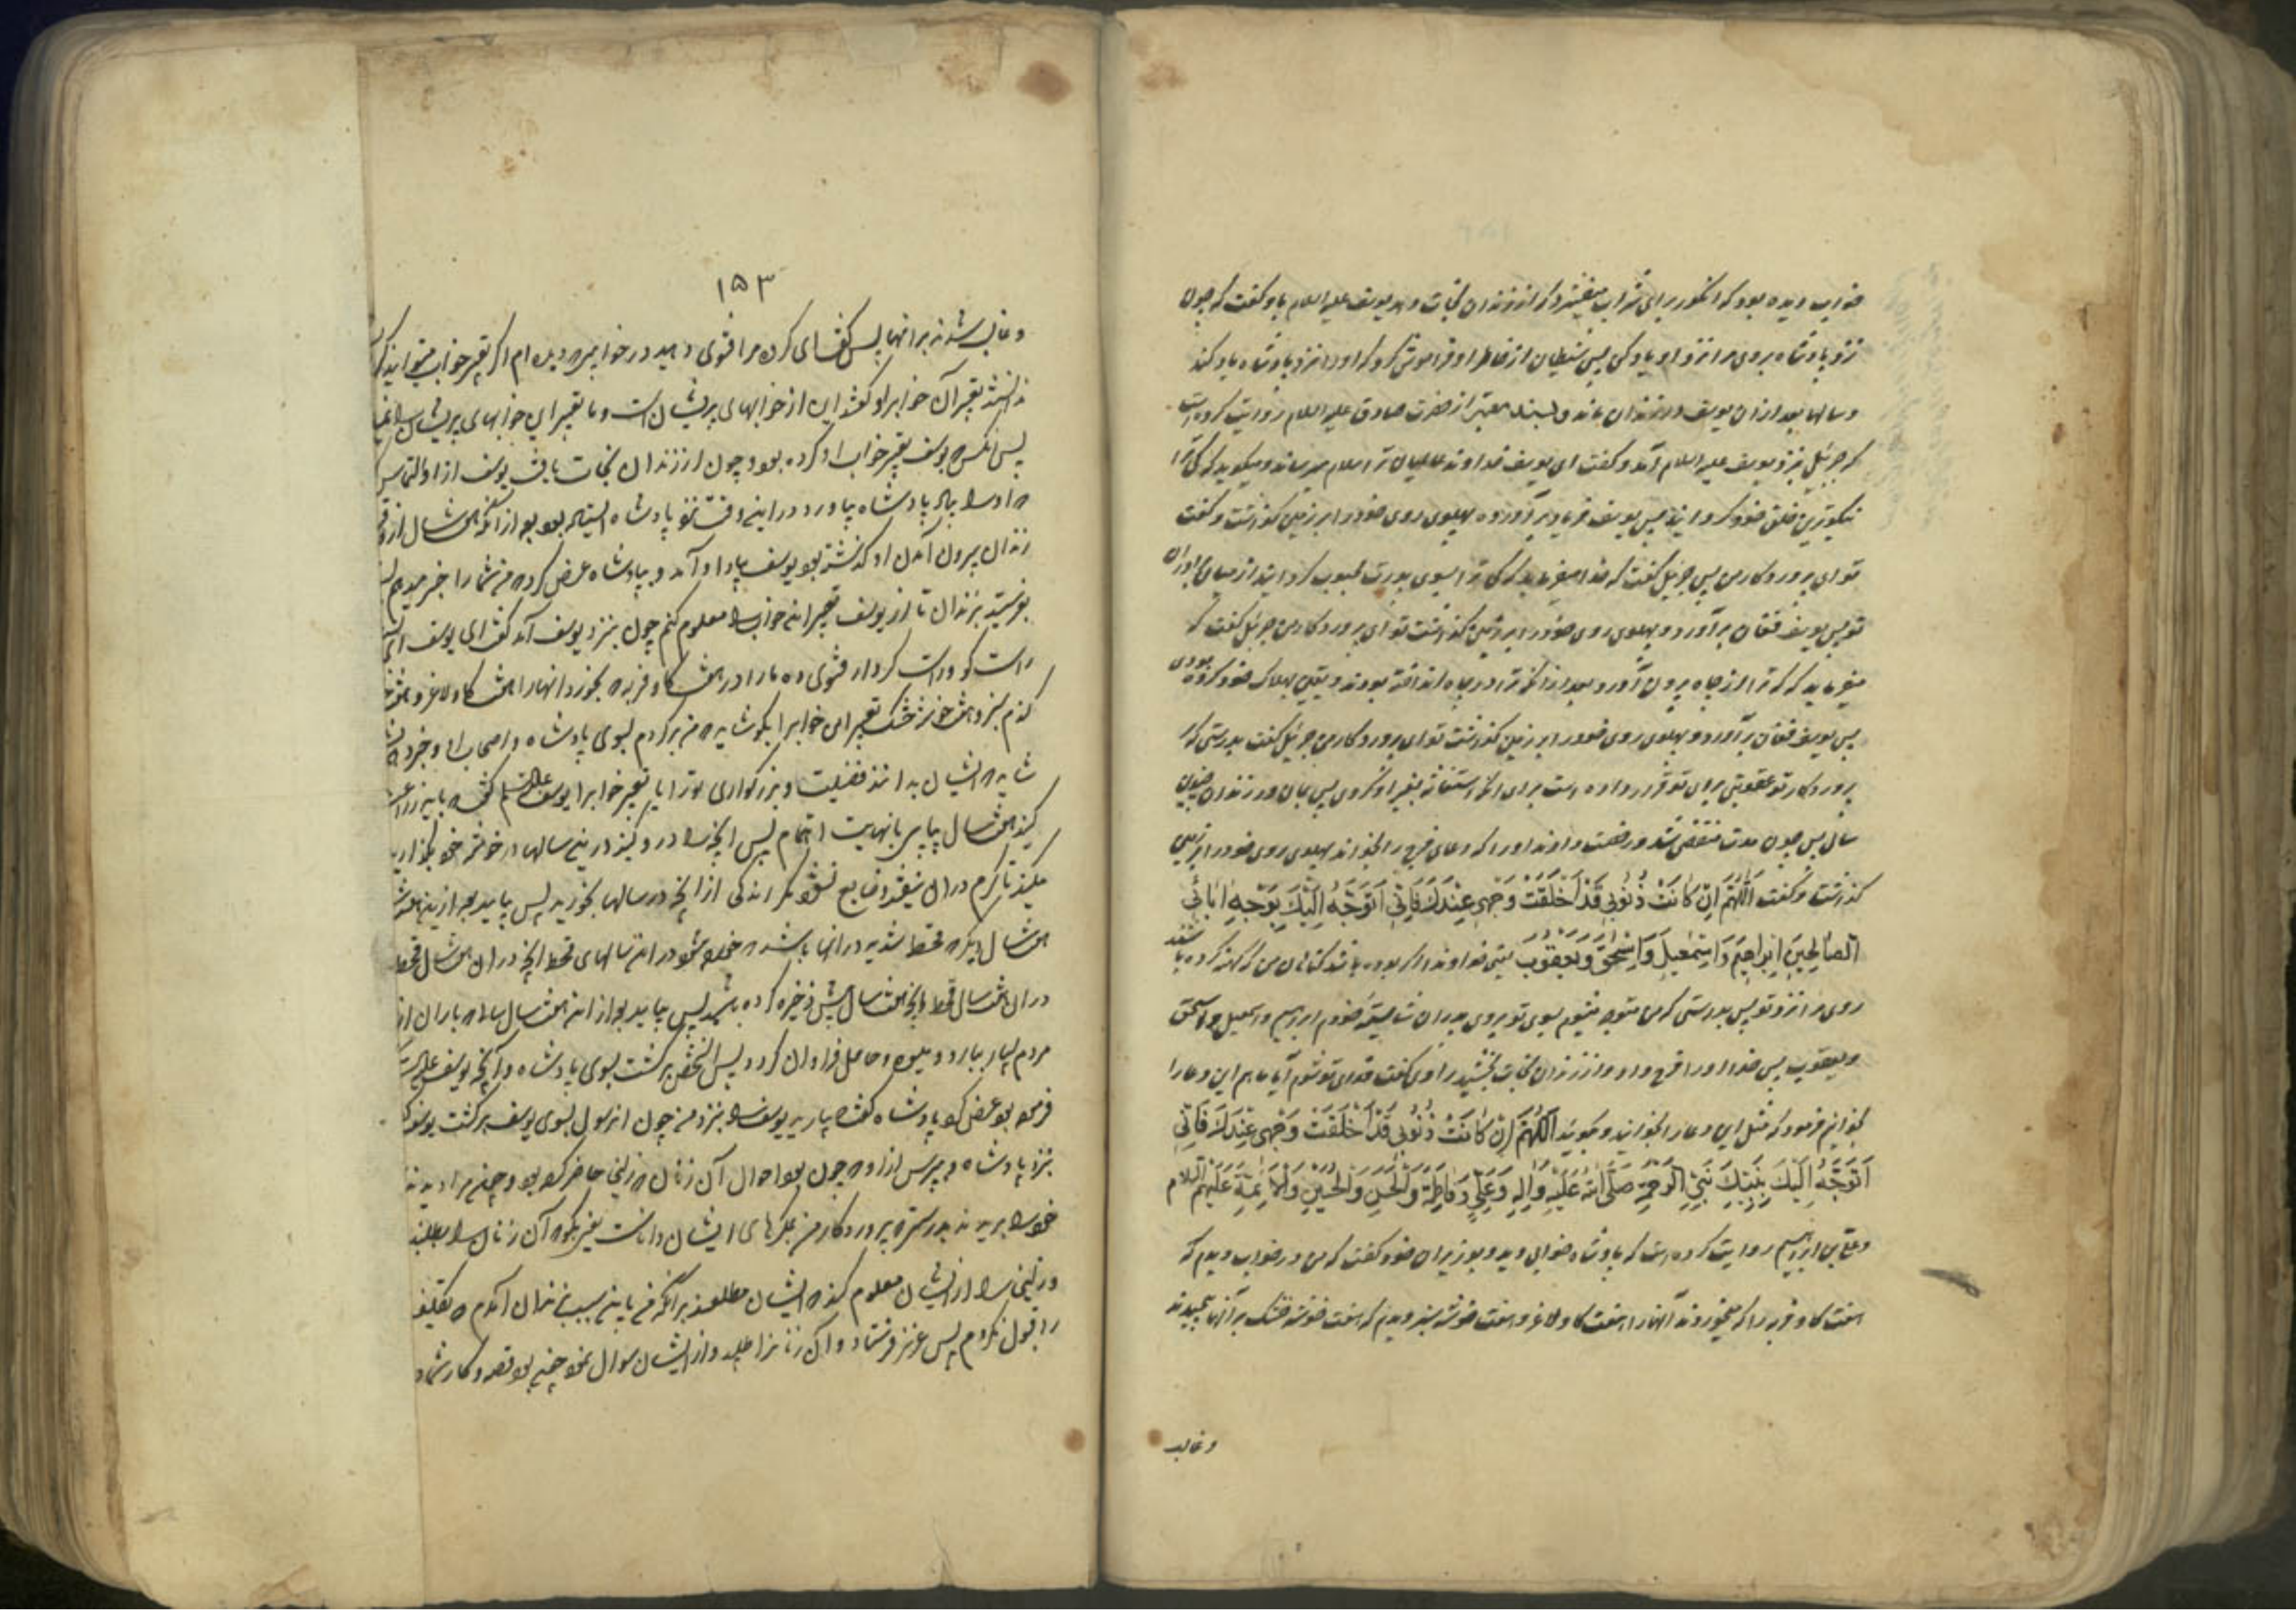 خواب دیده بود که انگور برای شراب میفشرد که از زندان نجات دهد یوسف علیه السلام باو گفت که چون
نزد پادشاه بروی مرا نزد او یاد کن پس شیطان از خاطر او فراموش کرد که او را نزد پادشاه یاد کند
و سالها بعد از ان یوسف در زندان ماند و بسند معتبر از حضرت صادق علیه السلام روایت کرده است
که جبرئیل بنزد یوسف علیه السلام آمد و گفت ای یوسف خداوند عالمیان ترا سلام میرساند و میگوید که کی ترا
نیکوترین خلق خود گردانید پس یوسف فریاد برآورد و پهلوی روی خود را بر زمین گذاشت و گفت
تو ای پروردگار من پس جبرئیل گفت که خدا میفرماید که کی ترا بسوی پدرت محبوب گردانید از میان برادران
تو پس یوسف فغان برآورد و پهلوی روی خود را بر زمین گذاشت تو ای پروردگار من جبرئیل گفت که
میفرماید که کی ترا از چاه بیرون آورد بعد از آنکه ترا در چاه انداخته بودند و یقین بهلاک خود کرده بودی
پس یوسف فغان برآورد و پهلوی روی خود را بر زمین گذاشت تو ای پروردگار من جبرئیل گفت بدرستی که
پروردگار تو عقوبتی برای تو قرار داده است برای آنکه استغاثه بغیر او کردی پس بمان در زندان چندین
سال پس چون مدت منقضی شد و رخصت دادند او را که دعای فرج را بخواند پهلوی روی خود را بر زمین
گذاشت و گفت اَللّٰهُمَّ اِنْ كَانَتْ ذُنُوبِي قَدْ اَخْلَقَتْ وَجْهِي عِنْدَكَ فَاِنِّي اَتَوَجَّهُ اِلَيْكَ بِوَجْهِ اٰبَائِيَ
الصَّالِحِينَ اِبْرَاهِيمَ وَاِسْمٰعِيلَ وَاِسْحٰقَ وَيَعْقُوبَ یعنی خداوندا اگر بوده باشد گناهان من که کهنه کرده باشد
روی مرا نزد تو پس بدرستی که من متوجه میشوم بسوی تو بروی پدران شایسته خودم ابراهیم و اسمعیل و اسحق
و یعقوب پس خدا او را فرج داد و از زندان نجات بخشید راوی گفت فدای تو شوم آیا ما هم این دعا را
بخوانیم فرمود که مثل این دعا را بخوانید و بگوئید اَللّٰهُمَّ اِنْ كَانَتْ ذُنُوبِي قَدْ اَخْلَقَتْ وَجْهِي عِنْدَكَ فَاِنِّي
اَتَوَجَّهُ اِلَيْكَ بِنَبِيِّكَ نَبِيِّ الرَّحْمَةِ صَلَّى اللهُ عَلَيْهِ وَاٰلِهِ وَعَلِيٍّ وَفَاطِمَةَ وَالْحَسَنِ وَالْحُسَيْنِ وَالْاَئِمَّةِ عَلَيْهِمُ السَّلام
و علی بن ابراهیم روایت کرده است که پادشاه خوابی دید و بوزیران خود گفت که من در خواب دیدم که
هفت گاو فربه را که میخوردند آنها را هفت گاو لاغر و هفت خوشه سبز دیدم که هفت خوشه خشک بر آنها پیچیدند
و غالب
۱۵۳
و غالب شدند برانها پس گفت ای گروه مرا فتوی دهید در خوابیکه دیده ام اگر تعبیر خواب میتوانید کرد
ندانستند تعبیر آن خواب را و گفتند این از خوابهای پریشان است و ما تعبیر این خوابهای پریشان را
پس آنکس که یوسف تعبیر خواب او کرده بود و چون از زندان نجات یافت یوسف از او التماس
که او را بیاد پادشاه بیاورد در این وقت نزد پادشاه ایستاده بود بعد از آنکه هفت سال از
زندان بیرون آمدن او گذشته بود یوسف بیاد او آمد و بپادشاه عرض کرد که من شما را خبر میدهم
بفرستید بزندان تا از یوسف تعبیر این خواب را معلوم کنم چون بنزد یوسف آمد گفت ای یوسف ای
راست گو و راست کردار فتوی ده ما را در هفت گاو فربه که بخورد آنها را هفت گاو لاغر و هفت خوشه
گندم سبز و هفت خوشه خشک تعبیر این خواب را بگو شاید که من برگردم بسوی پادشاه و اصحاب او و خبر دهم
شاید که ایشان بدانند فضیلت و بزرگواری ترا یا تعبیر خواب را یوسف علیه السلام گفت که باید زراعت
کنید هفت سال پیاپی بانهایت اهتمام پس آنچه را درو کنید در این سالها در خوشه خود بگذارید
میکنید تا کرم در ان نیفتد و ضایع نشود مگر اندکی از آنچه در سالها بخورید پس بیاید بعد از این هفت
هفت سال دیگر که قحط شدید در آنها باشد که خورده شود در این سالهای قحط آنچه در ان هفت سال قحط
در ان هفت سال قحط آنچه هفت سال پیش ذخیره کرده باشید پس بیاید بعد از این هفت سال سالی که باران از
مردم بسیار ببارد و میوه و حاصل فراوان گردد پس آنشخص برگشت بسوی پادشاه و آنچه یوسف علیه السلام
فرموده بود عرض کرد پادشاه گفت بیاورید یوسف را بنزد من چون آن رسول بسوی یوسف برگشت یوسف گفت
بنزد پادشاه و بپرس از او که چون بود احوال آن زنان که زلیخا حاضر کرده بود و چون مرا دیدند
خود را بریدند بدرستیکه پروردگار من بمکرهای ایشان داناست یعنی بگو که آن زنان را بطلبد
و زلیخا را و از ایشان معلوم کند که ایشان مطلعند بر آنکه من باین سبب بزندان آمدم که تکلیف
را قبول نکردم پس عزیز فرستاد و آن زنانرا طلبید و از ایشان سوال نمود چه بود قصه و کار شما